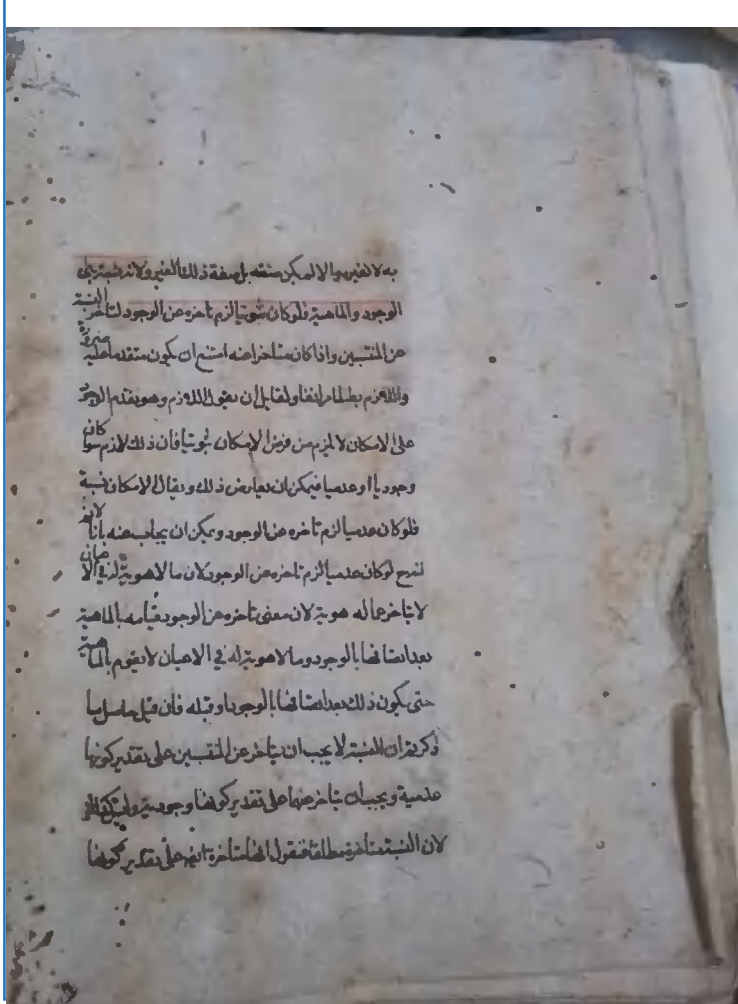 به لا لغيره والا لم يكن صفته بل صفة ذلك الغير ولانه نسبة بين
الوجود والماهية فلو كان ثبوتيا لزم تاخره عن الوجود لتاخر النسبة
عن المنتسبين واذا كان متاخرا عنه امتنع ان يكون متقدما عليه ضرورة
واللازم بط لما مر انفا ولقايل ان يقول اللازم وهو تقدم الوجود
على الامكان لا يلزم من فرض الامكان ثبوتيا فان ذلك لازم سوا كان
وجوديا او عدميا فيمكن ان يعارض ذلك ويقال الامكان نسبة
فلو كان عدميا لزم تاخره عن الوجود ويمكن ان يجاب عنه بانا لانم
انه لوكان عدميا لزم تاخره عن الوجود لان ما لا هوية له في الاعيان
لا يتاخر عما له هوية لان معنى تاخره عن الوجود قيامه بالماهية
بعد اتصافها بالوجود وما لا هوية له في الاعيان لا يقوم بالماهية
حتى يكون ذلك بعد اتصافها بالوجود او قبله فان قيل حاصل ما
ذكرتم ان النسبة لا يجب ان يتاخر عن المنتسبين على تقدير كونها
عدمية ويجب ان يتاخر عنها على تقدير كونها وجودية وليس كذلك
لان النسبة متاخرة مطلقا فنقول انها متاخرة عنهما على تقدير كونها